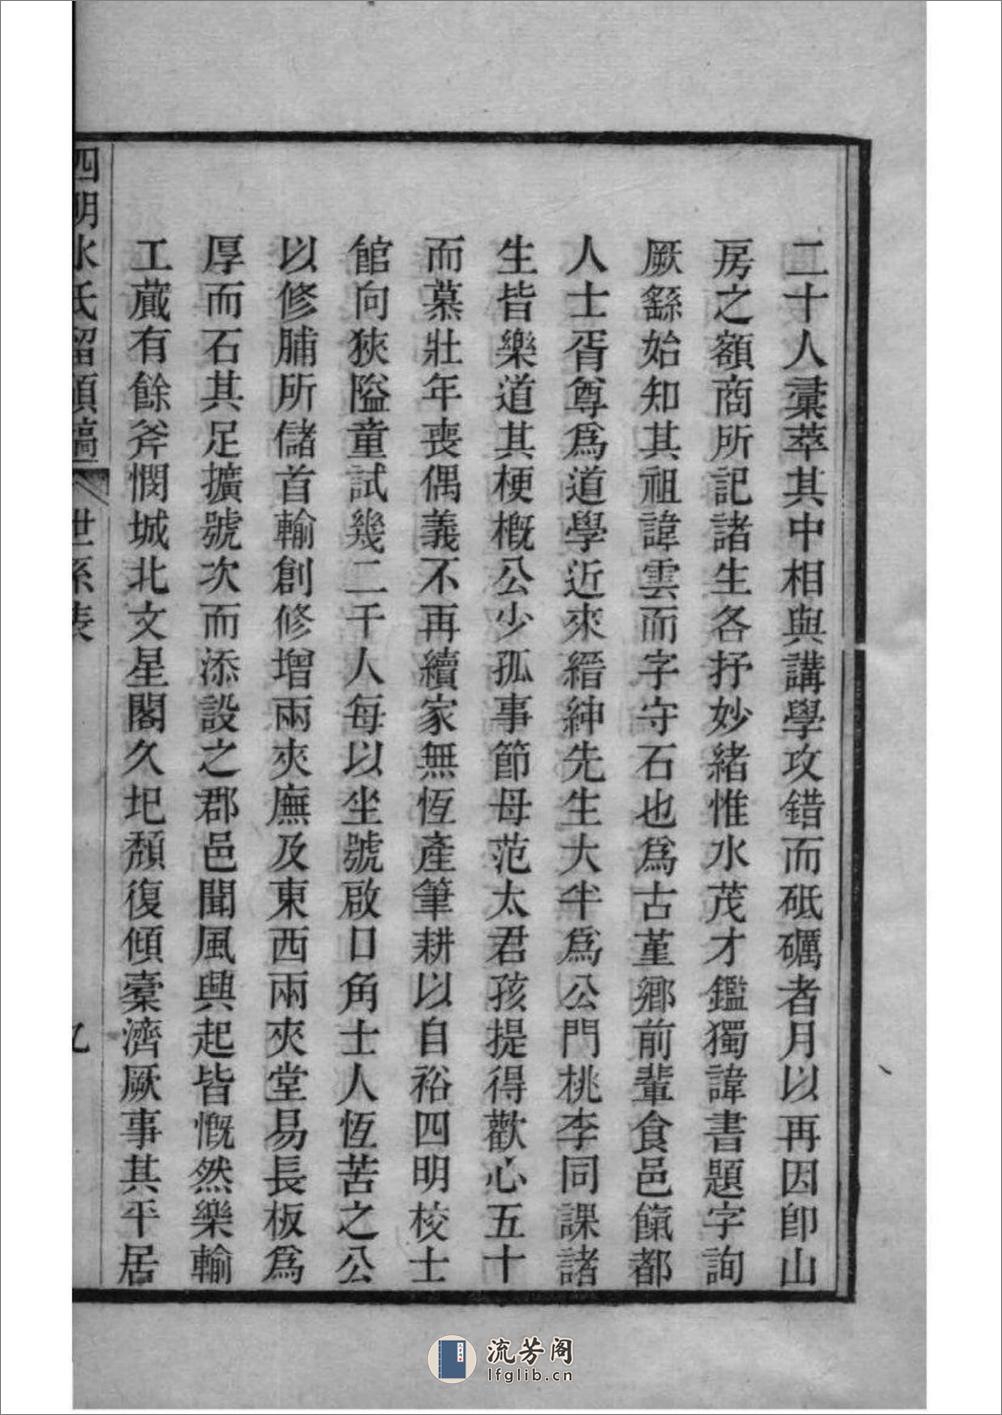 二十人彙萃其中相與講學攻錯而砥礪者月以再因卽山
房之額商所記諸生各抒妙緒惟水茂才鑑獨諱書題字詢
厥繇始知其祖諱雲而字守石也爲古堇鄉前輩食邑餼都
人士胥尊爲道學近來縉紳先生大半爲公門桃李同課諸
生皆樂道其梗槪公少孤事節母范太君孩提得歡心五十
而慕壯年喪偶義不再續家無恆產筆耕以自裕四明校士
館向狹隘童試幾二千人每以坐號啟口角士人恆苦之公
以修脯所儲首輸創修增兩夾廡及東西兩夾堂易長板爲
厚而石其足擴號次而添設之郡邑聞風興起皆慨然樂輸
工蕆有餘斧憫城北文星閣久圮頽復傾橐濟厥事其平居
四明水氏留碩稿 世系表
流芳阁
lfglib.cn